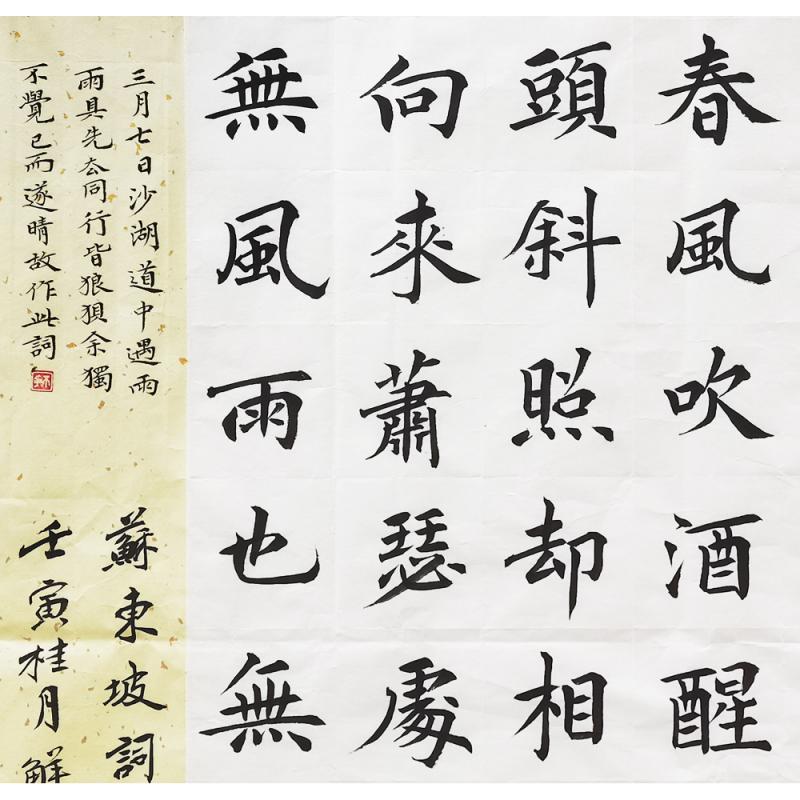 春風吹酒醒
頭斜照却相
向來蕭瑟處
無風雨也無
三月七日沙湖道中遇雨
雨具先去同行皆狼狽余獨
不覺已而遂晴故作此詞
蘇東坡詞
壬寅桂月